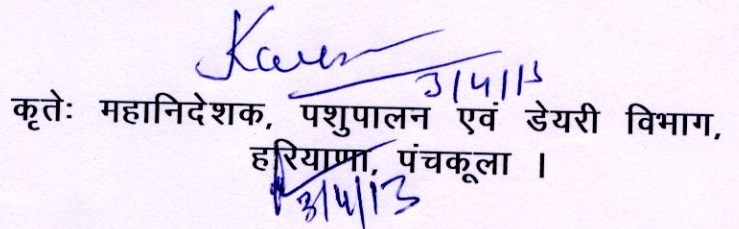 3/4/13
कृतेः महानिदेशक, पशुपालन एवं डेयरी विभाग,
हरियाणा, पंचकूला ।
3/4/13